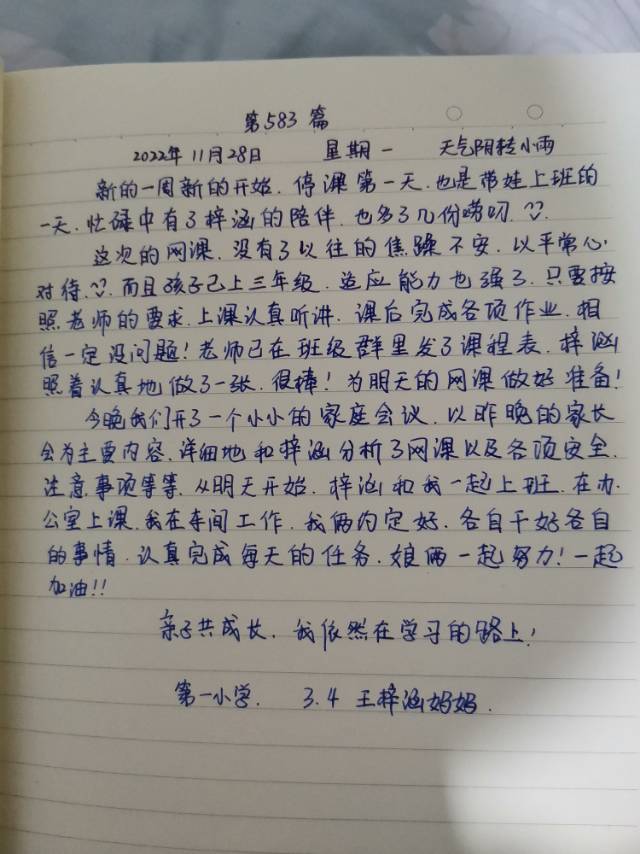 第583篇
2022年11月28日 星期一 天气阴转小雨
新的一周新的开始.停课第一天.也是带娃上班的
一天.忙碌中有了梓涵的陪伴.也多了几份唠叨.
这次的网课.没有了以往的焦躁不安.以平常心
对待.而且孩子已上三年级.适应能力也强了.只要按
照老师的要求.上课认真听讲.课后完成各项作业.相
信一定没问题!老师已在班级群里发了课程表.梓涵
照着认真地做了一张.很棒!为明天的网课做好准备!
今晚我们开了一个小小的家座会议.以昨晚的家长
会为主要内容.详细地和梓涵分析了网课以及各项安全
注意事项等等.从明天开始.梓涵和我一起上班.在办
公室上课.我在车间工作.我俩约定好.各自干好各自
的事情.认真完成每天的任务.娘俩一起努力!一起
加油!!
亲子共成长.我依然在学习的路上!
第一小学. 3.4 王梓涵妈妈.